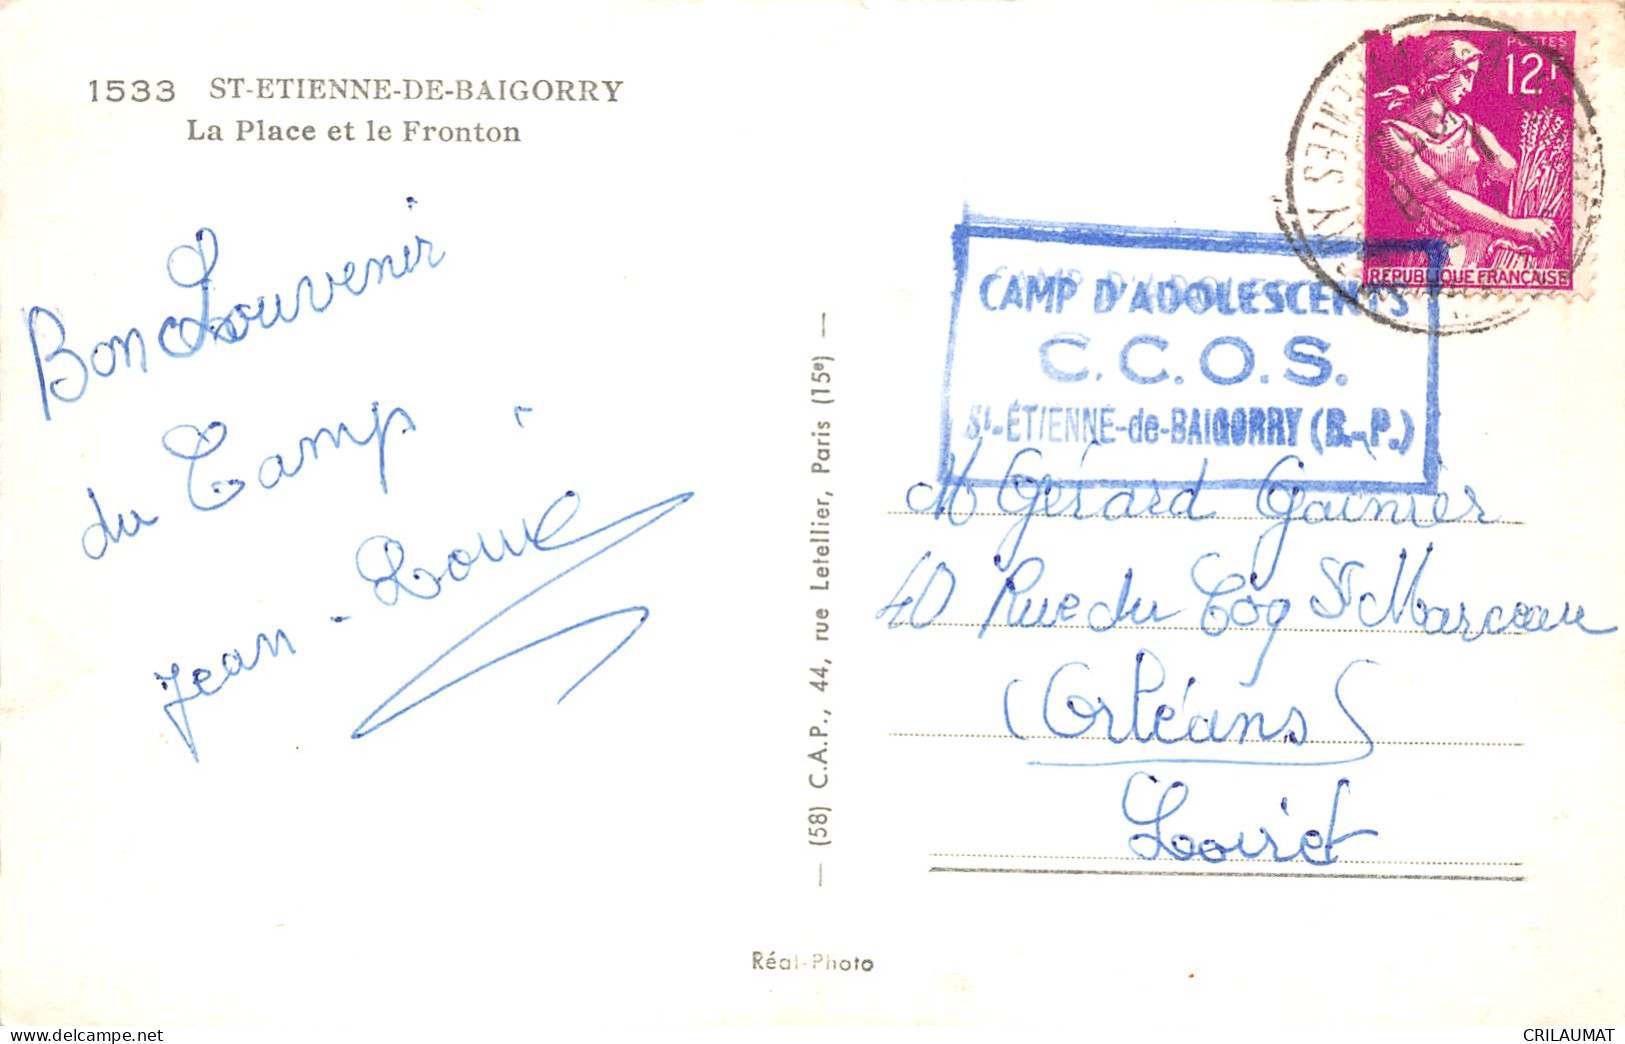 1533 ST-ETIENNE-DE-BAIGORRY
La Place et le Fronton
Bon Souvenir
du Camp
Jean-Louis
(58) C.A.P., 44, rue Letellier, Paris (15e)
Réal-Photo
POSTES
12F
REPUBLIQUE FRANÇAISE
CAMP D'ADOLESCENTS
C.C.O.S.
St-ÉTIENNE-de-BAIGORRY (B.-P.)
M Gérard Gainier
40 Rue du Coq St Marceau
(Orléans)
Loiret
https://www.delcampe.net
CRILAUMAT